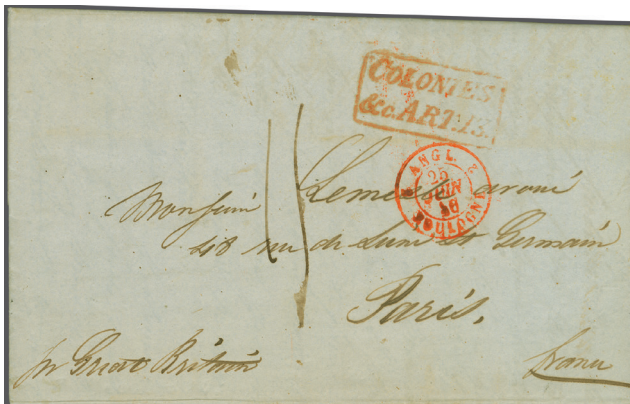 COLONIES
&c. ART. 13.
ANGL. 2
25
JUIN
46
BOULOGNE
Monsieur
48 rue de Lune St Germain
Paris.
pr Great Britain
France